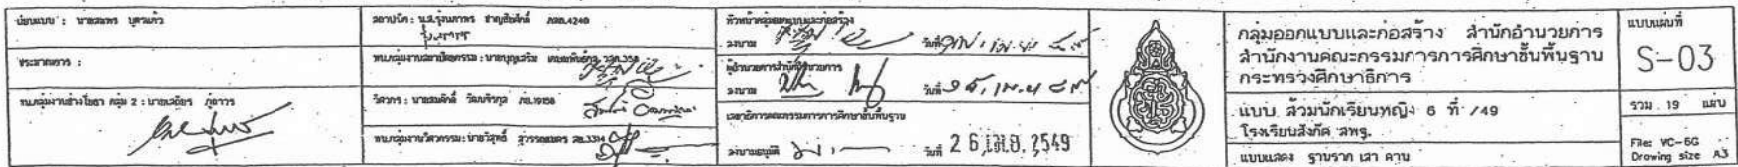 เขียนแบบ : นายสมพร บุตรแก้ว
ประมาณการ :
หน.กลุ่มงานช่างโยธา กลุ่ม 2 : นายเสถียร
สถาปนิก : น.ส.รุ่งนภาพร ชาญชัยศักดิ์ ภสถ.4240
หน.กลุ่มงานสถาปัตยกรรม : นายบุญเสริม
วิศวกร : นายสมศักดิ์
หน.กลุ่มงานวิศวกรรม : นายวิสุทธิ์
หัวหน้ากลุ่มออกแบบและก่อสร้าง
ลงนาม วันที่
ผู้อำนวยการสำนักอำนวยการ
ลงนาม วันที่
เลขาธิการคณะกรรมการการศึกษาขั้นพื้นฐาน
ลงนามอนุมัติ วันที่ 26 เม.ย. 2549
กลุ่มออกแบบและก่อสร้าง สำนักอำนวยการ
สำนักงานคณะกรรมการการศึกษาขั้นพื้นฐาน
กระทรวงศึกษาธิการ
แบบ ส้วมนักเรียนหญิง 6 ที่ /49
โรงเรียนสังกัด สพฐ.
แบบแสดง ฐานราก เสา คาน
แบบแผ่นที่
S-03
รวม 19 แผ่น
File: VC-6G
Drawing size A3